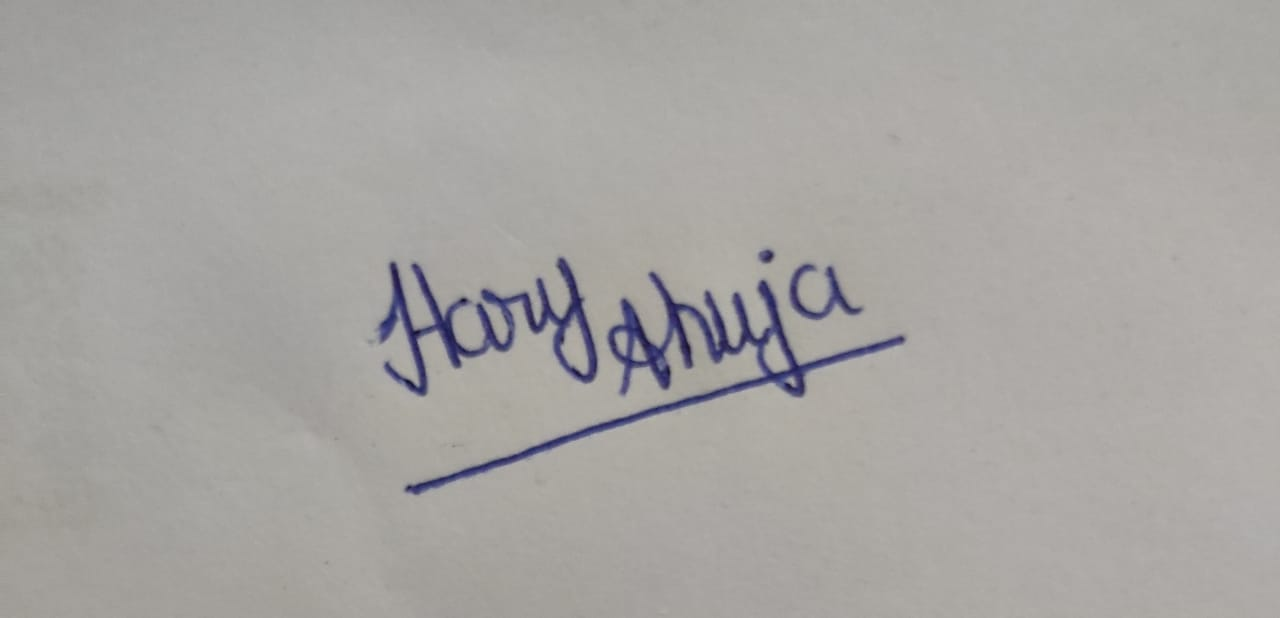 Hary Ahuja